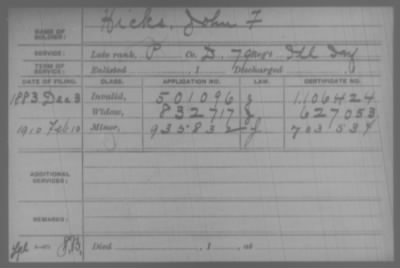 Hicks, John F
NAME OF SOLDIER:
SERVICE: Late rank, P Co. D, 79 Reg't Ill Inf
TERM OF SERVICE: Enlisted , 1 Discharged
DATE OF FILING. CLASS. APPLICATION NO. LAW. CERTIFICATE NO.
1883 Dec 3 Invalid, 501096 1.106424
Widow, 832717 627053
1910 Feb 10 Minor, 935832 703537
ADDITIONAL SERVICES:
REMARKS:
Died , 1 , at